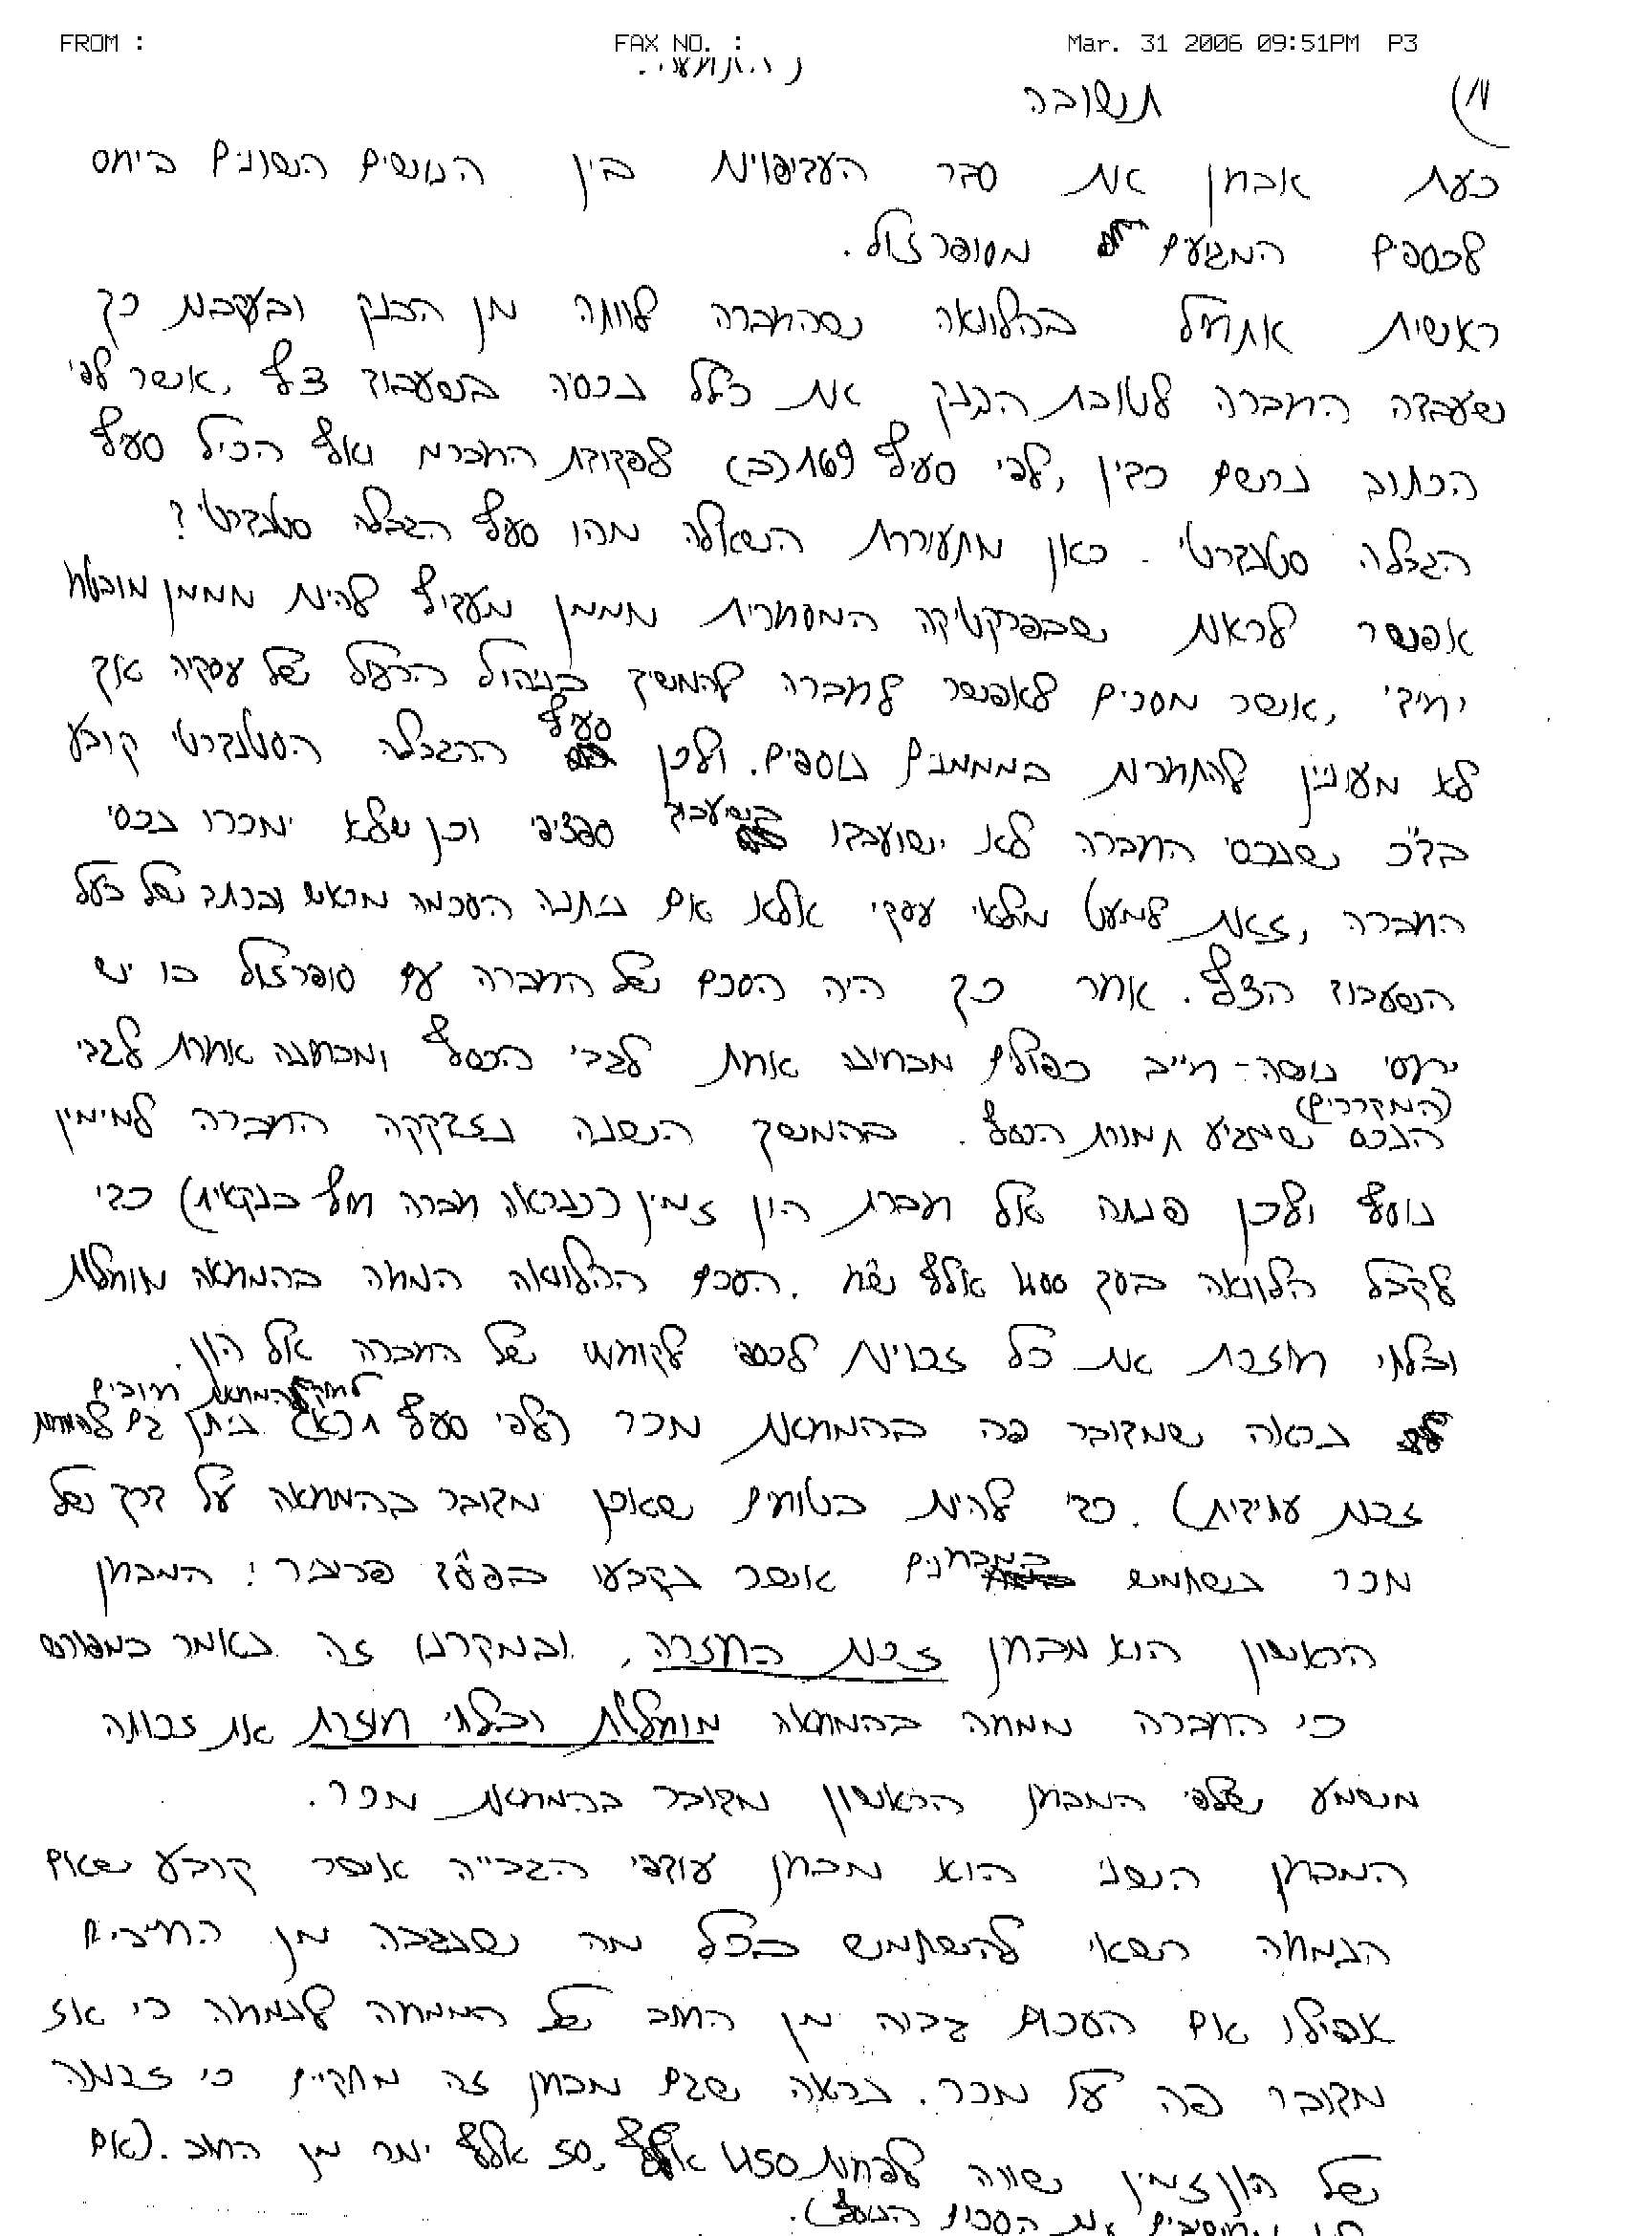 FROM : FAX NO. : Mar. 31 2006 09:51PM P3
תשובה
כעת אבחן את סדר העדיפויות בין הנושים השונים ביחס
לכספים המגיעים מסופרזול.
ראשית אתחיל בהלוואה שהחברה לוותה מן הבנק ובעקבות כך
שעבדה החברה לטובת הבנק את כלל נכסיה בשעבוד צף, אשר לפי
הכתוב נרשם כדין, לפי סעיף 169(ב) לפקודת החברות ואף הכיל סעיף
הגבלה סטנדרטי. כאן מתעוררת השאלה מהו סעיף הגבלה סטנדרטי?
אפשר לראות שבפרקטיקה המסחרית מממן מעדיף להיות מממן מובטח
יחידי, אשר מסכים לאפשר לחברה להמשיך בניהול הרגיל של עסקיה אך
לא מעוניין להתחרות במממנים נוספים. ולכן סעיף ההגבלה הסטנדרטי קובע
בד"כ שנכסי החברה לא ישועבדו בשעבוד ספציפי וכן שלא ימכרו נכסי
החברה, זאת למעט מלאי עסקי אלא אם ניתנה הסכמה מראש ובכתב של בעל
השעבוד הצף. אחר כך היה הסכם של החברה עם סופרזול בו יש
יחסי נושה-חייב כפולים מבחינה אחת לגבי הכסף ומבחינה אחרת לגבי
הנכס (המקררים) שמגיע תמורת הכסף. בהמשך השנה נזדקקה החברה למימון
נוסף ולכן פנתה אל חברת הון זמין (כנראה חברה חוץ בנקאית) כדי
לקבל הלוואה בסך 400 אלף ש"ח. הסכם ההלוואה המחה בהמחאה מוחלטת
ובלתי חוזרת את כל זכויות לכספי לקוחות של החברה אל הון.
נראה שמדובר פה בהמחאת מכר (לפי סעיף 1(א) לחוק המחאת חיובים ניתן גם להמחות
זכות עתידית). כדי להיות בטוחים שאכן מדובר בהמחאה על דרך של
מכר נשתמש במבחנים אשר נקבעו בפס"ד פרובר: המבחן
הראשון הוא מבחן זכות החזרה, ובמקרנו זה נאמר במפורש
כי החברה ממחה בהמחאה מוחלטת ובלתי חוזרת את זכותה
משמע שלפי המבחן הראשון מדובר בהמחאת מכר.
המבחן השני הוא מבחן עודפי הגבייה אשר קובע שאם
הנמחה רשאי להשתמש בכל מה שנגבה מן החייבים
אפילו אם הסכום גבוה מן החוב של הממחה לנמחה כי אז
מדובר פה על מכר. נראה שגם מבחן זה מתקיים כי זכותה
של הון זמין שווה לפחות 450 אלף, 50 אלף יותר מן החוב. (אם
את הסכום הנוסף).